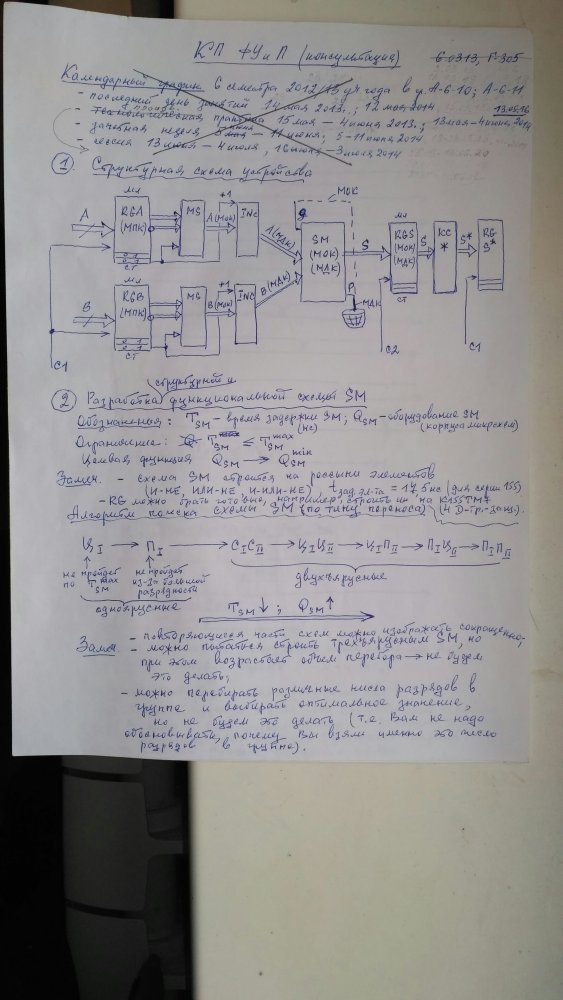 КП ФУиП (консультация)
Г-305
Календарный график 6 семестра 2012/13 уч. года в гр. А-6-10; А-6-11
- последний день занятий 14 мая 2013.; 12 мая 2014
13.05.16
- Технологическая практика 15 мая – 4 июня 2013.; 13 мая – 4 июня 2014
- зачетная неделя 5 июня – 11 июня; 5-11 июня 2014
- сессия 13 июня – 4 июля, 16 июня – 3 июля 2014
1. Структурная схема устройства
МОК
A
мл
RGA
(МПК)
СТ
MS
A(МОК)
+1
INC
A(МДК)
SM
(МОК)
(МДК)
S
мл
RGS
(МОК)
(МДК)
СТ
S
КС
*
S*
RG
S*
B
мл
RGB
(МПК)
СТ
MS
B(МОК)
+1
INC
B(МДК)
P
МДК
C1
C2
C1
структурной и
2 Разработка функциональной схемы SM
Обозначения: TSM – время задержки SM; QSM – оборудование SM
(нс) (корпуса микросхем)
Ограничение: TSM ≤ TSM max
Целевая функция QSM → QSM min
Замеч. - схема SM строится на россыпи элементов
(И-НЕ, ИЛИ-НЕ, И-ИЛИ-НЕ) tзад.эл-та = 17,5 нс (для серии 155)
- RG можно брать готовые, например, строить их на К155ТМ7
(4 D-тр.-защ.).
Алгоритм поиска схемы SM (по типу переноса)
ЦI → ПI → CICII → ЦIЦII → ЦIПII → ПIЦII → ПIПII
не пройдет по TSM max
не пройдет из-за большой разрядности
одноярусные
двухъярусные
TSM ↓ ; QSM ↑
Замеч. - повторяющиеся части схем можно изображать сокращенно;
- можно пытаться строить трехъярусным SM, но
при этом возрастает объем перебора → не будем
это делать;
- можно перебирать различные числа разрядов в
группе и выбирать оптимальное значение,
но не будем это делать (т.е. Вам не надо
обосновывать, почему Вы взяли именно это число
разрядов в группе).